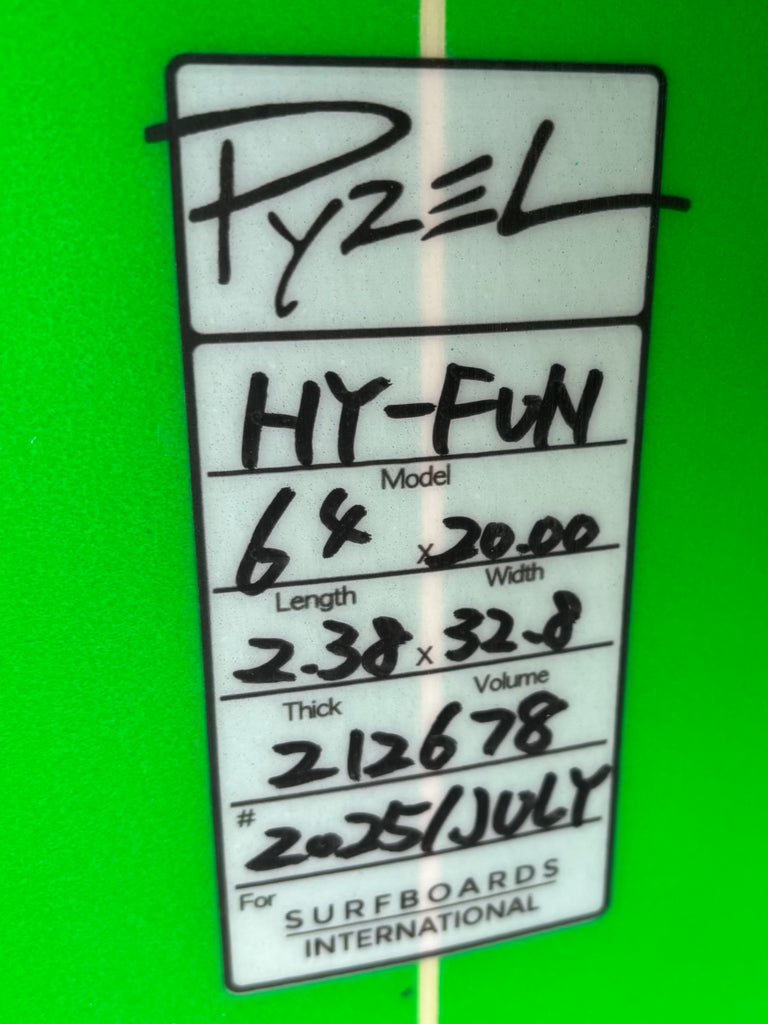 PYZEL
HY-FUN
Model
6 4 x 20.00
Length Width
2.38 x 32.8
Thick Volume
212678
# 2025/JULY
For SURFBOARDS
INTERNATIONAL